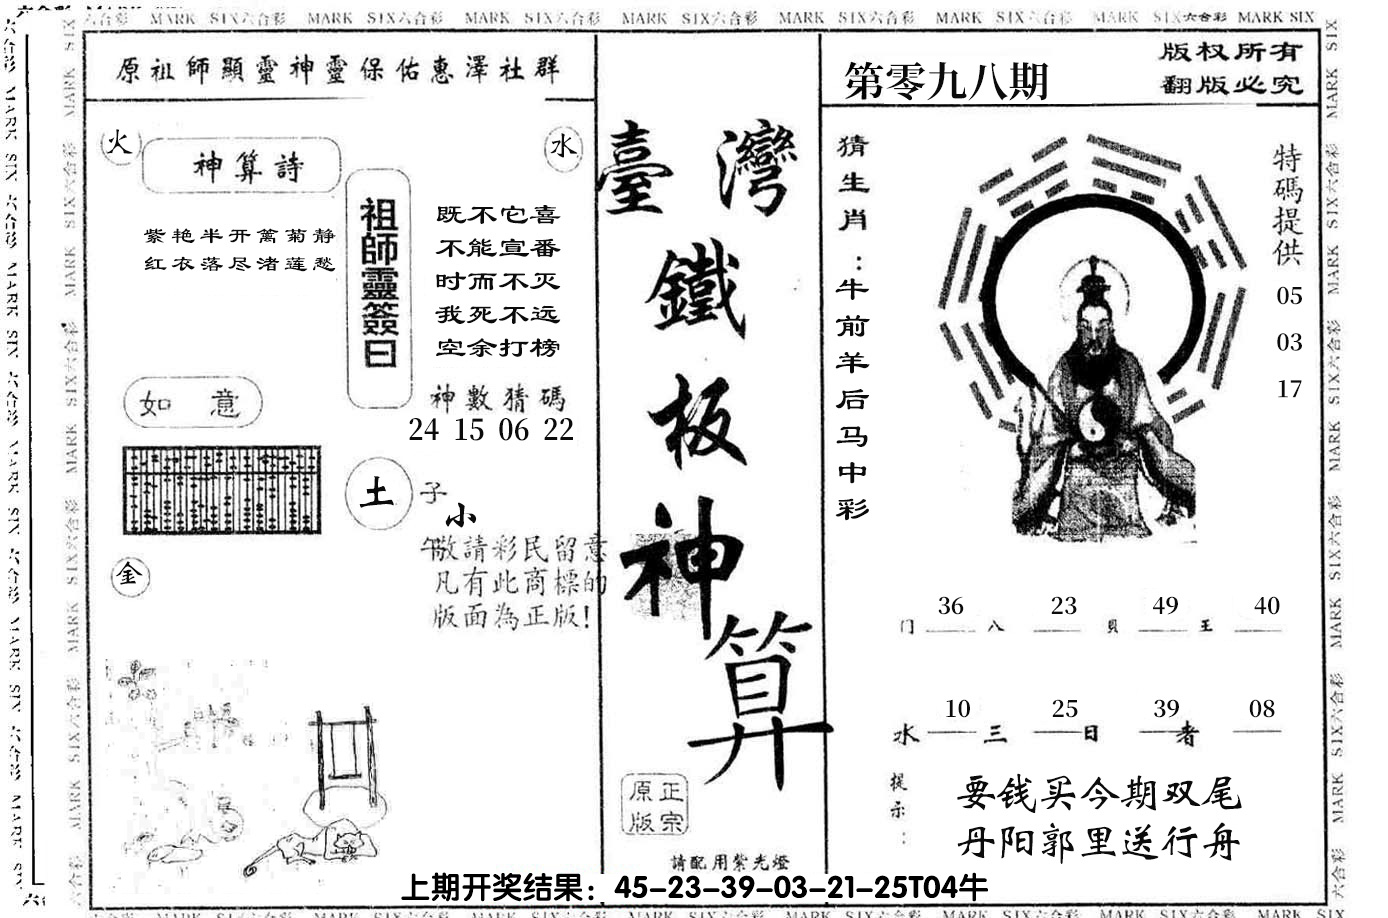 六合彩 MARK SIX六合彩 MARK SIX六合彩 MARK SIX六合彩 MARK SIX六合彩 MARK SIX六合彩 MARK SIX六合彩 MARK SIX六合彩 MARK SIX
原祖師顯靈神靈保佑惠澤社群
火
水
神算詩
紫艳半开篱菊静
红衣落尽渚莲愁
祖師靈簽曰
既不它喜
不能宣番
时而不灭
我死不远
空余打榜
神數猜碼
24 15 06 22
如 意
土
子
小
午
敬請彩民留意
凡有此商標的
版面為正版！
金
臺灣
鐵
板
神
算
正宗
原版
請配用紫光燈
第零九八期
版权所有
翻版必究
猜生肖：牛前羊后马中彩
特碼提供
05
03
17
36 23 49 40
门 八 贝 王
10 25 39 08
水 三 日 者
提示：
要钱买今期双尾
丹阳郭里送行舟
上期开奖结果：45-23-39-03-21-25T04牛